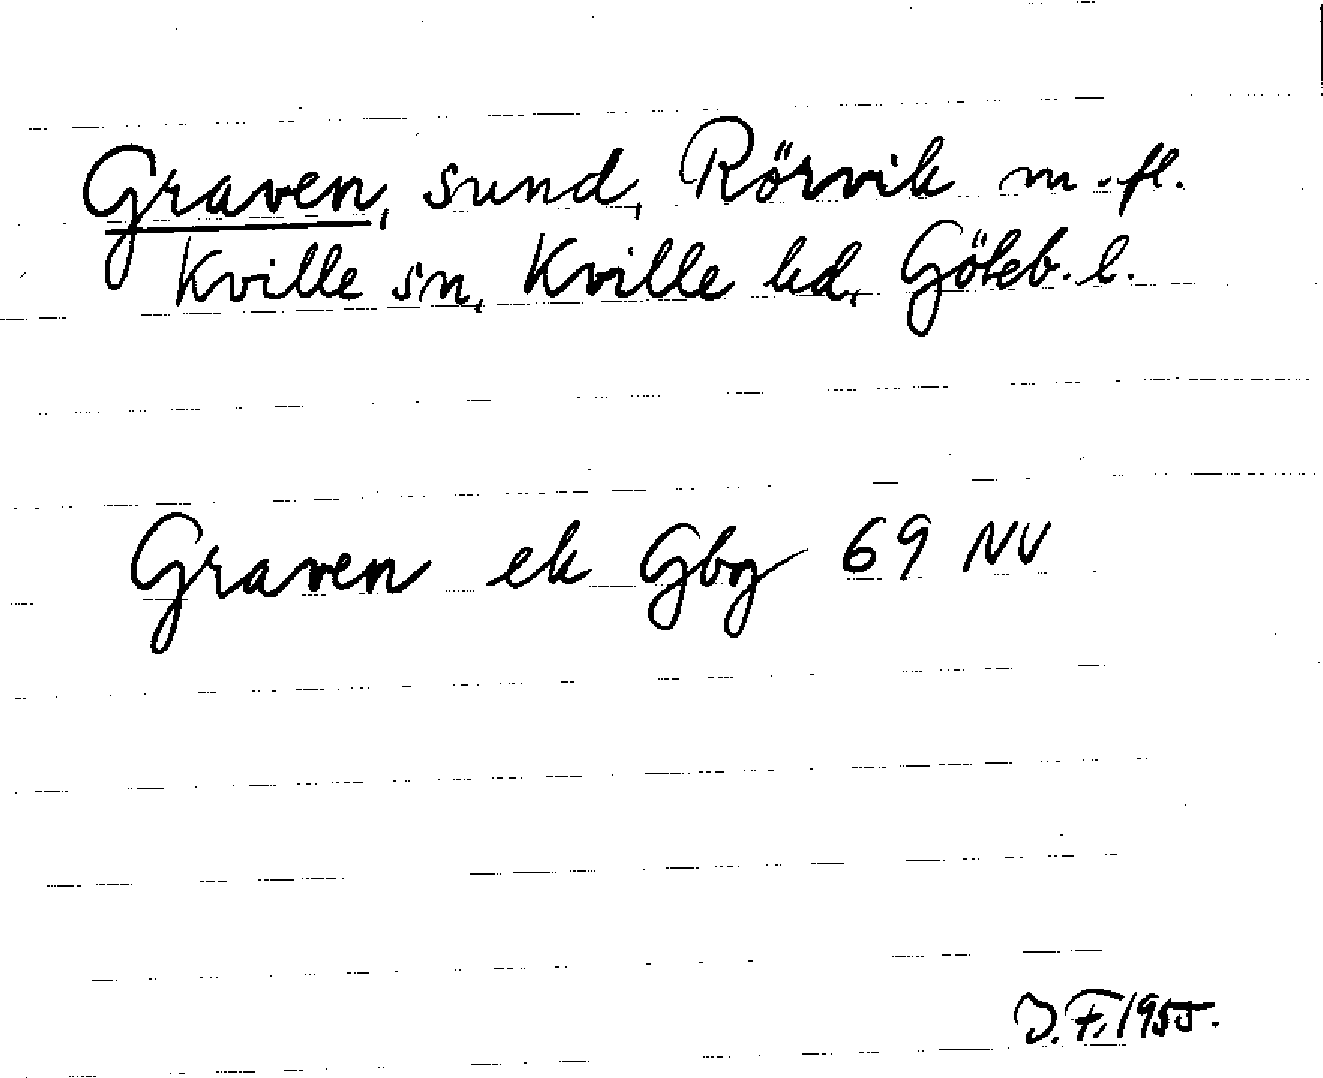 Graven, sund, Rörvik m. fl.
Kville sn, Kville hd, Göteb. l.
Graven ek Gbg 69 NV
J. F. 1955.